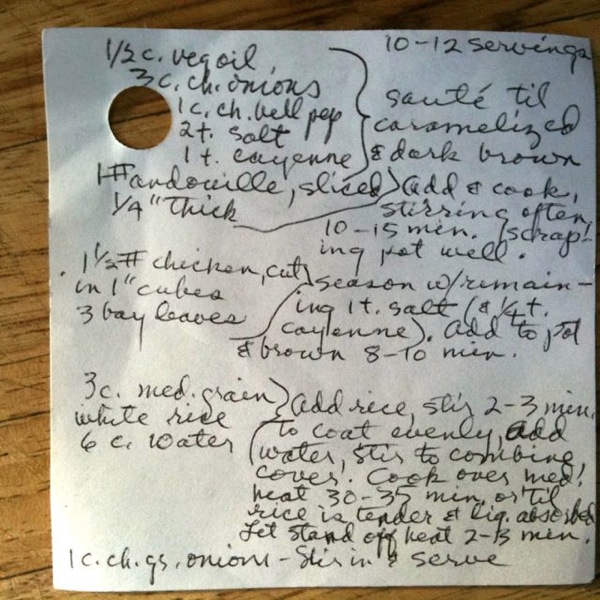 10-12 servings
1/2 c. veg oil
3 c. ch. onions
1 c. ch. bell pep
2 t. salt
1 t. cayenne
sauté til
caramelized
& dark brown
1# andouille, sliced
1/4" thick
add & cook,
stirring often,
10-15 min. (scrap-
ing pot well.
1 1/2# chicken, cut
in 1" cubes
3 bay leaves
season w/remain-
ing 1 t. salt (& 1/4 t.
cayenne). Add to pot
& brown 8-10 min.
3 c. med. grain
white rice
6 c. water
Add rice, stir 2-3 min.
to coat evenly, add
water, stir to combine
cover. Cook over med.
heat 30-35 min. or til
rice is tender & liq. absorbed
Let stand off heat 2-3 min.
1 c. ch. gr. onions - Stir in & serve